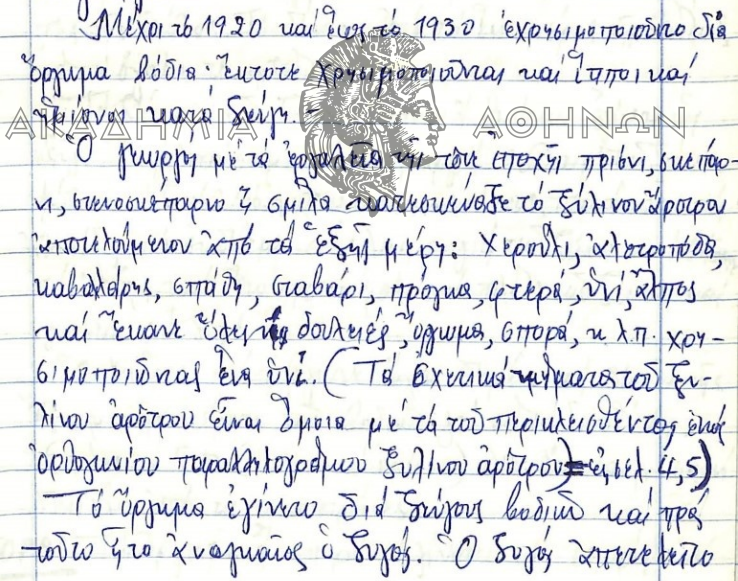 Μέχρι τὸ 1920 καί ἕως τό 1930 ἐχρησιμοποιοῦντο διά
ὄργωμα βόδια· ἔκτοτε χρησιμοποιοῦνται καί ἵπποι καί
ἡμίονοι κατά ζεύγη.-
ΑΚΑΔΗΜΙΑ ΑΘΗΝΩΝ
Ὁ γεωργός μέ τά ἐργαλεῖα τῆς τότε ἐποχῆς πριόνι, σκεπάρ-
νι, στενοσκέπαρνο ἤ σμίλα κατεσκεύαζε τό ξύλινον ἄροτρον
ἀποτελούμενον ἀπό τά ἑξῆς μέρη: χερούλι, ἀλετροπόδα,
καβαλάρης, σπάθη, σταβάρι, πρόγκα, φτερά, ὑνί,
καί ἔκανε ὅλες τίς δουλειές, ὄργωμα, σπορά, κ.λ.π. χρη-
σιμοποιῶντας ἕνα ὑνί. (Τά σχετικά τμήματα τοῦ ξυ-
λίνου ἀρότρου εἶναι ὅμοια μέ τά τοῦ περικλεισθέντος ἐντός
ὀρθογωνίου παραλληλογράμμου ξυλίνου ἀρότρου) εἰς σελ. 4,5)
Τό ὄργωμα ἐγίνετο διά ζεύγους βοδιῶν καί πρός
τοῦτο ἦτο ἀναγκαῖος ὁ ζυγός. Ὁ ζυγός ἀπετελεῖτο